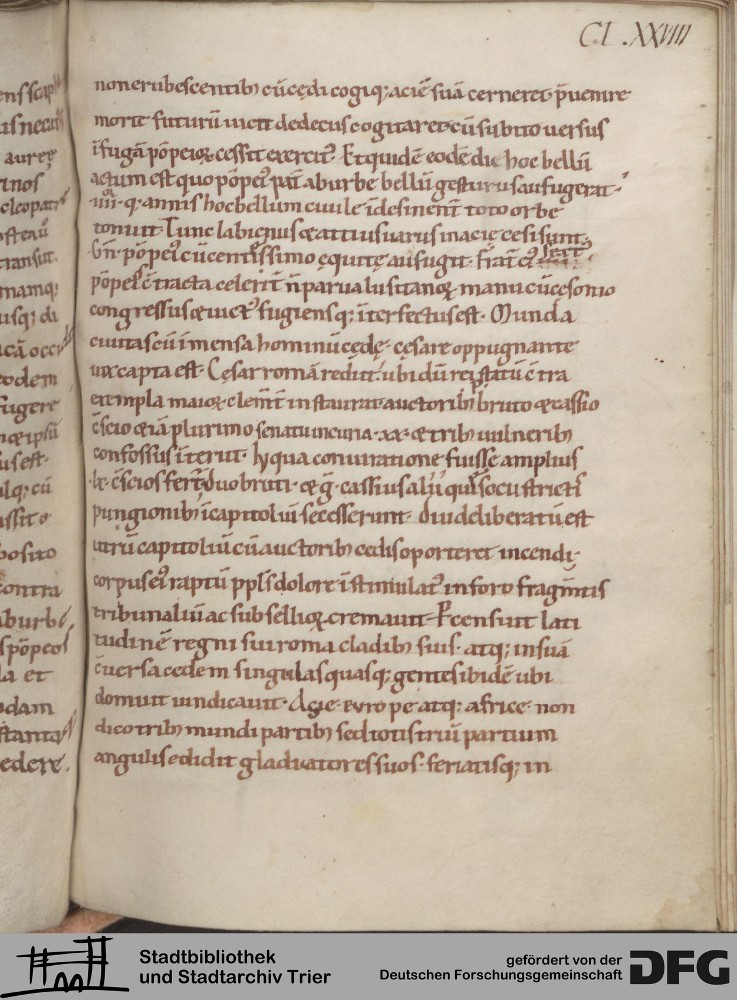 CLXXVIIII
non erubescentib; cū cędi cogiq; aciē suā cerneret. p̄uenire
morte futurū uicti dedecus cogitaret. cū subito uersus
ī fugā pōpeioꝝ cessit exercitꝰ. Et quidē eodē die hoc bellū
actum est quo pōpeiꝰ pat̄ ab urbe bellū gesturus aufugerat.
IIII. q; annis hoc bellum ciuile īdesinent̄ toto orbe
tonuit. Tunc labienus & attius uarus in acie cesi sunt.
Gn̄. pōpeiꝰ cū centū ssimo equite aufugit. Frat̄ eiꝰ
pōpeiꝰ c̄tracta celerit̄ n̄ parua lusitanoꝝ manu cū cesonio
congressus & uictꝰ fugiensq; īterfectus est. Munda
ciuitas cū īmensa hominū cęde. cęsare oppugnante
uix capta est. Cęsar romā rediit. ubi dū rei p. statū c̄tra
exempla maioꝝ clem̄t instaurat. auctorib; bruto & cassio
c̄scio &iā plurimo senatu in curia. xx. & trib; uulnerib;
confossus īteriit. In qua coniuratione fuisse amplius
lx. c̄scios fert̄. duo bruti. & g. cassius aliiq; socii strictis
pungionib; ī capitoliū secesserunt. diu deliberatū est
utrū capitoliū cū auctorib; cedis oporteret incendi.
corpus eiꝰ raptū ppl̄s dolore īstimulatꝰ in foro fragm̄tis
tribunaliū ac subsellioꝝ cremauit. Pcensuit lati
tudinē regni sui roma cladib; suis. atq; in suā
c̄uersa cedem singulas quasq; gentes ibidē ubi
domuit uindicauit. Asie. europe atq; africe. non
dico trib; mundi partib; sed totis triū partium
angulis edidit gladiatores suos. feriatisq; in
aurex
cleopatr
transiit.
namq;
usq; di
eodem
fugere
us est.
contra
ab urbe
la et
edere.
Stadtbibliothek
und Stadtarchiv Trier
gefördert von der
Deutschen Forschungsgemeinschaft
DFG